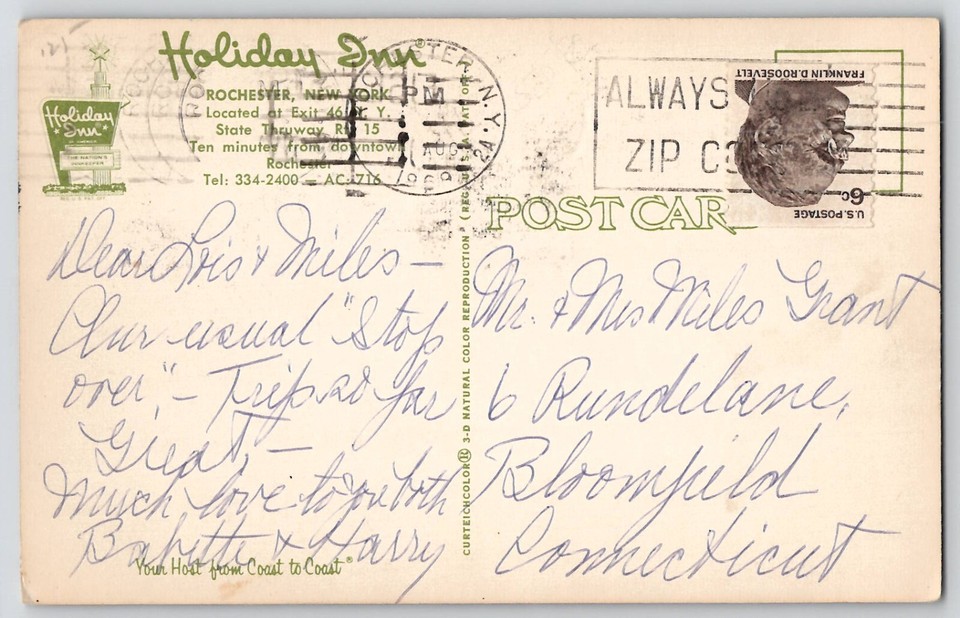 125
Holiday Inn®
Holiday
Inn
OF AMERICA
THE NATION'S
INNKEEPER
REG. U.S. PAT. OFF.
ROCHESTER, NEW YORK
Located at Exit 46 N. Y.
State Thruway Rt. 15
Ten minutes from downtown
Rochester
Tel: 334-2400 AC: 716
ROCHESTER, N.Y.
PM
AUG
24
1969
ALWAYS
ZIP CO
FRANKLIN D. ROOSEVELT
6c
U.S. POSTAGE
POST CARD
Dear Lois & Miles —
Our usual "Stop
over", — Trip so far
Great, —
Much love to you both
Babette & Harry
Your Host from Coast to Coast®
CURTEICHCOLOR® 3-D NATURAL COLOR REPRODUCTION (REG. U.S.A. PAT. OFF.)
Mr. & Mrs Miles Grant
6 Rundelane,
Bloomfield
Connecticut